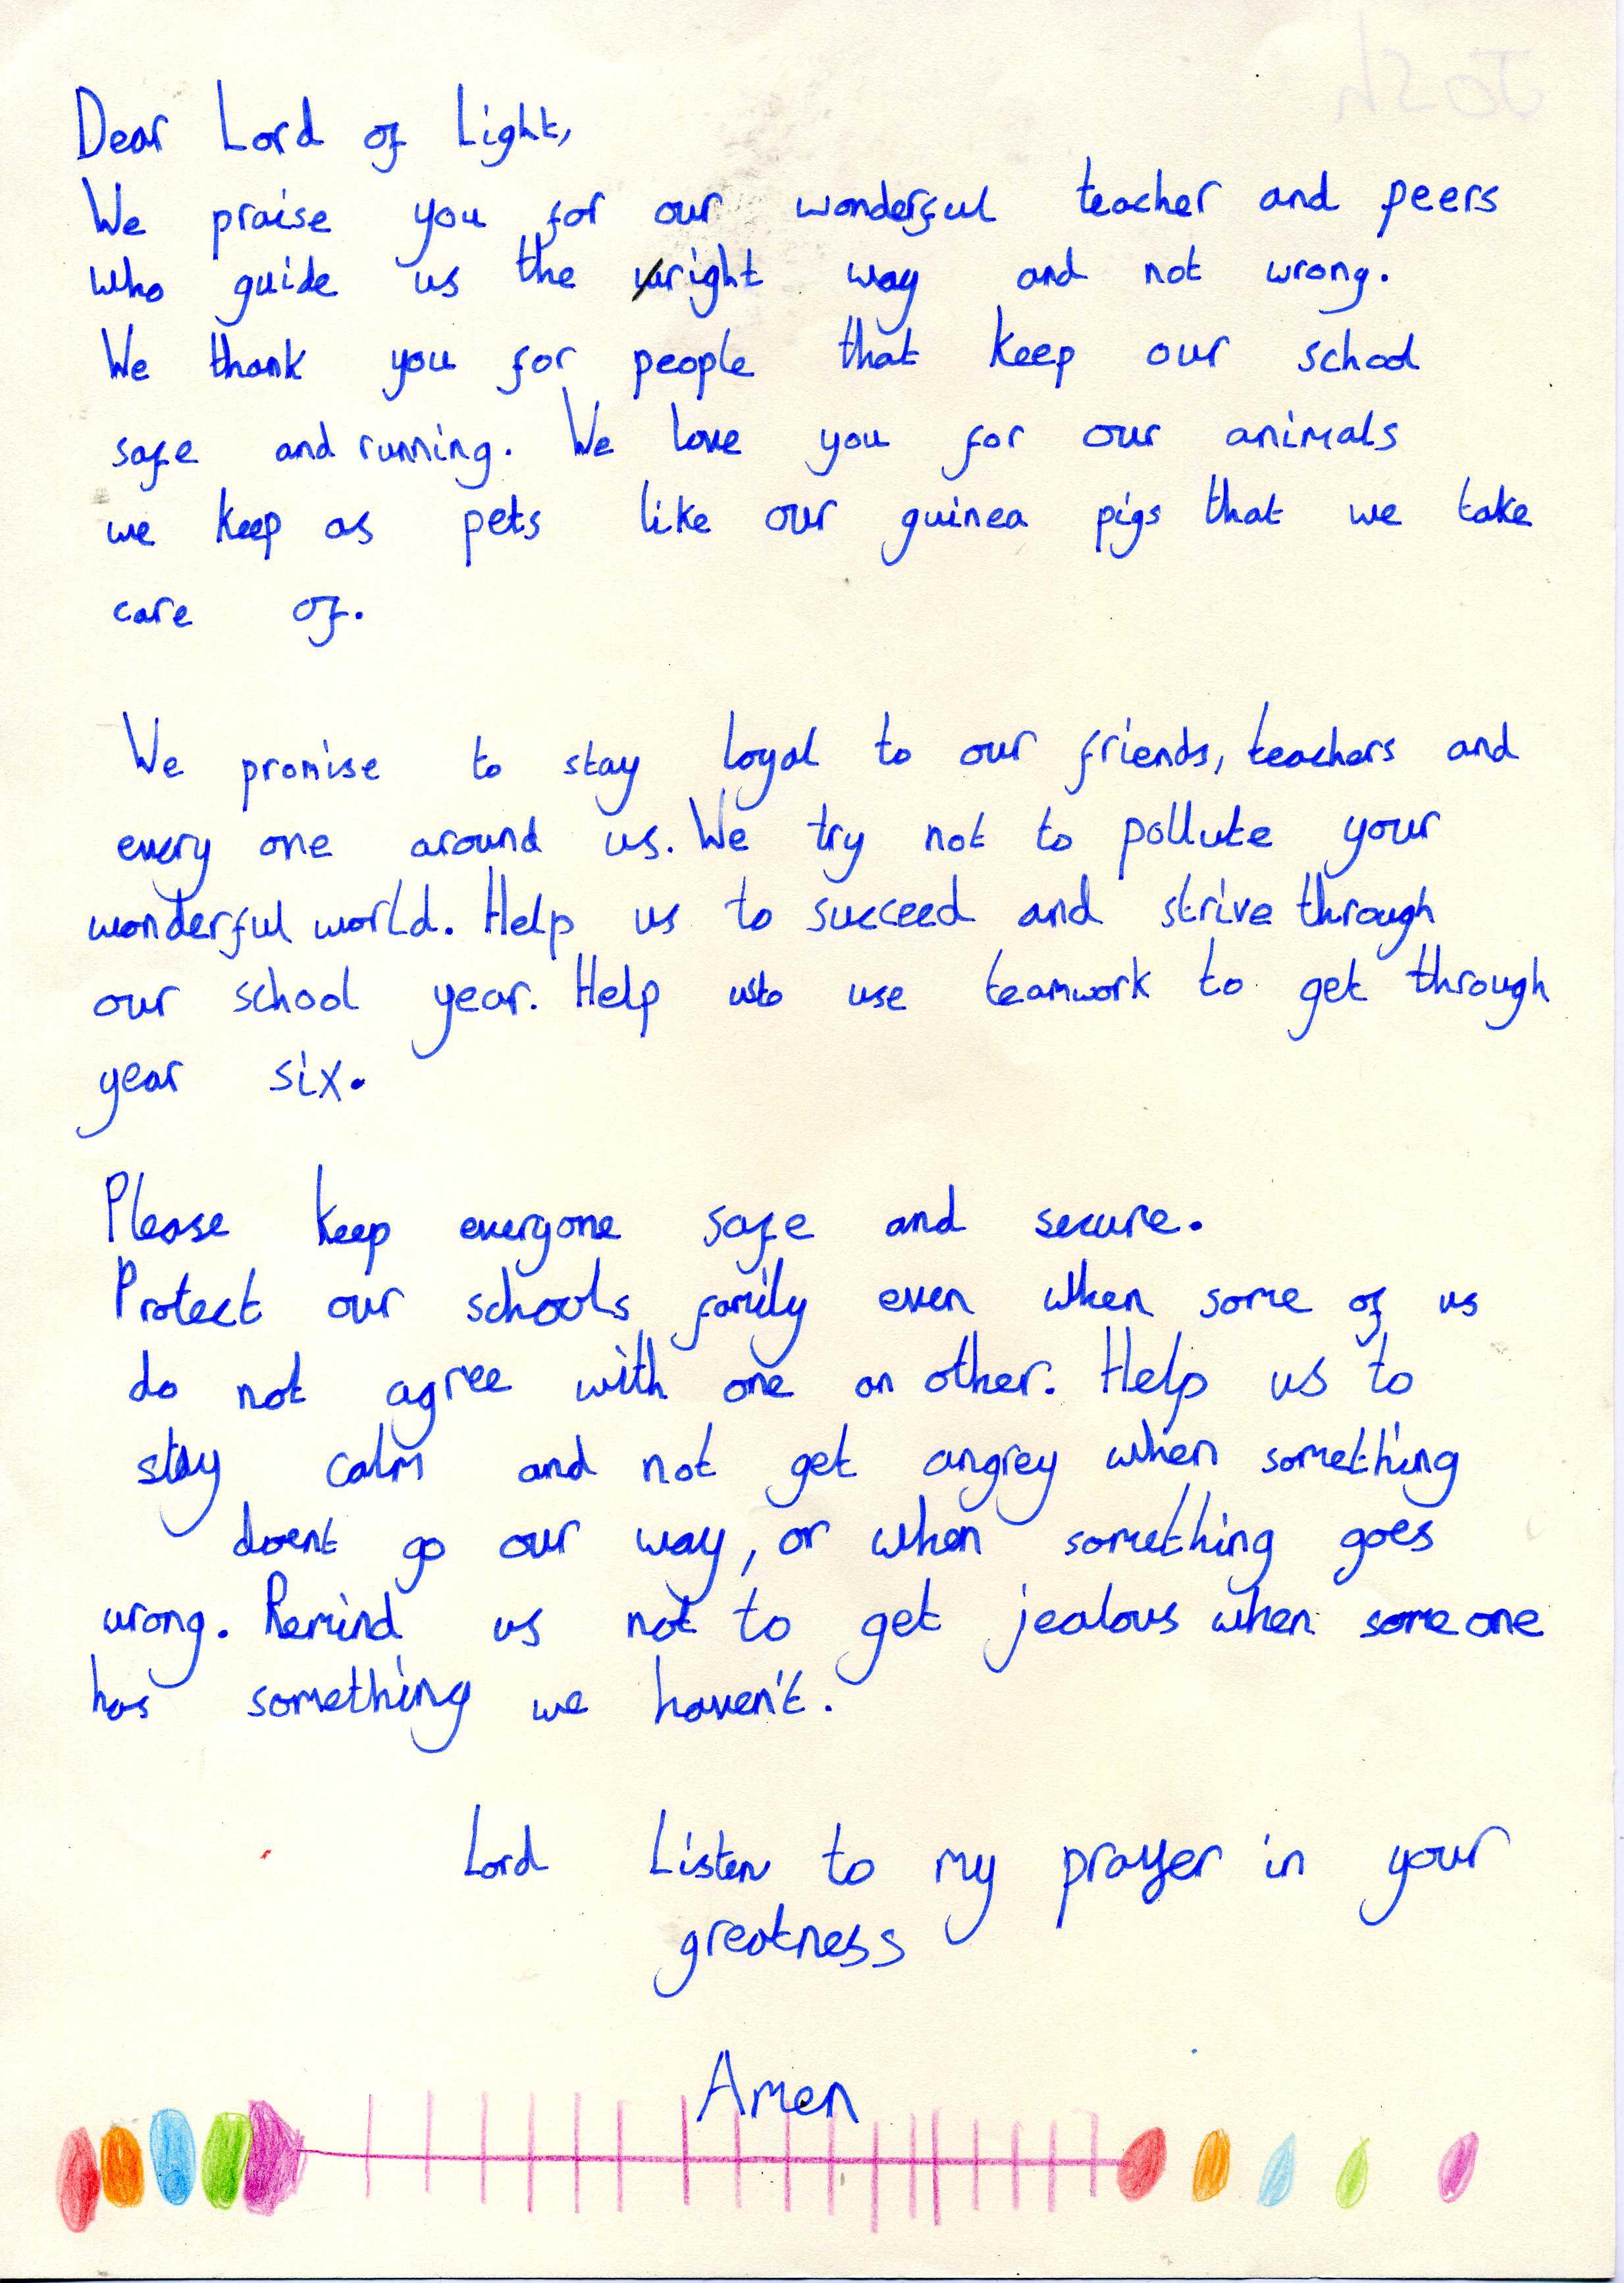 Dear Lord of Light,
We praise you for our wonderful teacher and peers
who guide us the right way and not wrong.
We thank you for people that keep our school
safe and running. We love you for our animals
we keep as pets like our guinea pigs that we take
care of.
We promise to stay loyal to our friends, teachers and
every one around us. We try not to pollute your
wonderful world. Help us to succeed and strive through
our school year. Help us to use teamwork to get through
year six.
Please keep everyone safe and secure.
Protect our schools family even when some of us
do not agree with one an other. Help us to
stay calm and not get angrey when something
doent go our way, or when something goes
wrong. Remind us not to get jealous when some one
has something we haven't.
Lord Listen to my prayer in your
greatness
Amen
Josh